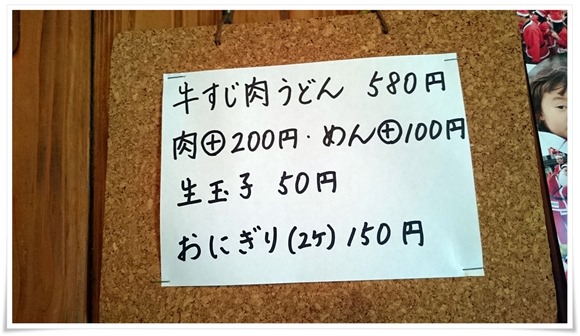 牛すじ肉うどん 580円
肉⊕200円・めん⊕100円
生玉子 50円
おにぎり(2ケ)150円